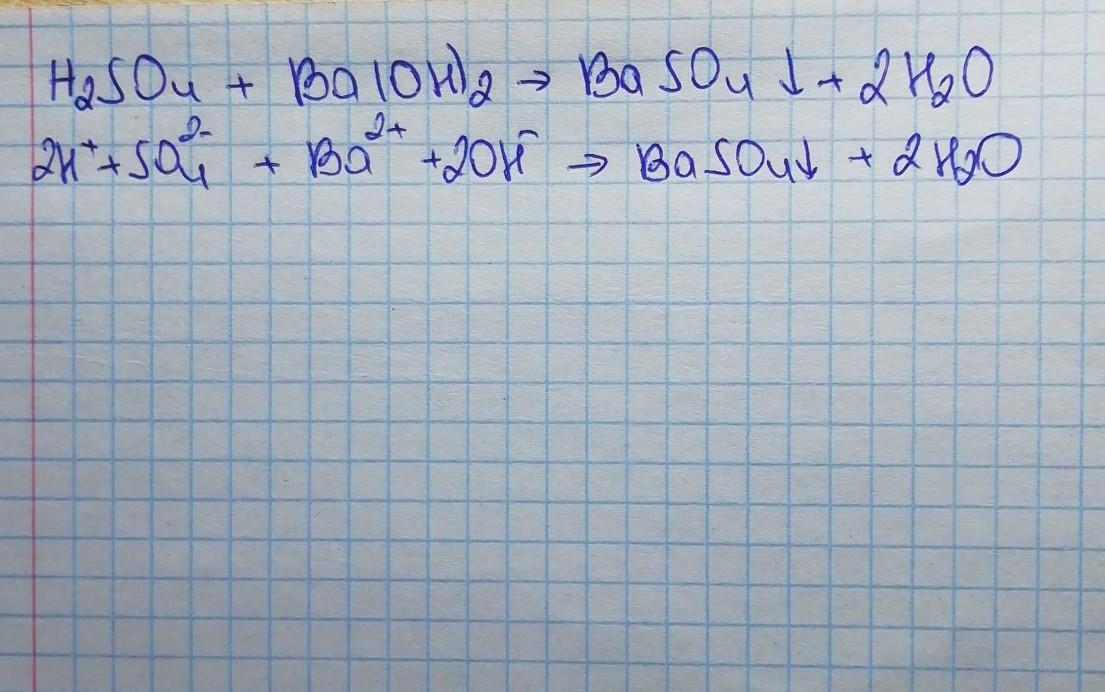 H₂SO₄ + Ba(OH)₂ → BaSO₄↓ + 2H₂O
2H⁺ + SO₄²⁻ + Ba²⁺ + 2OH⁻ → BaSO₄↓ + 2H₂O